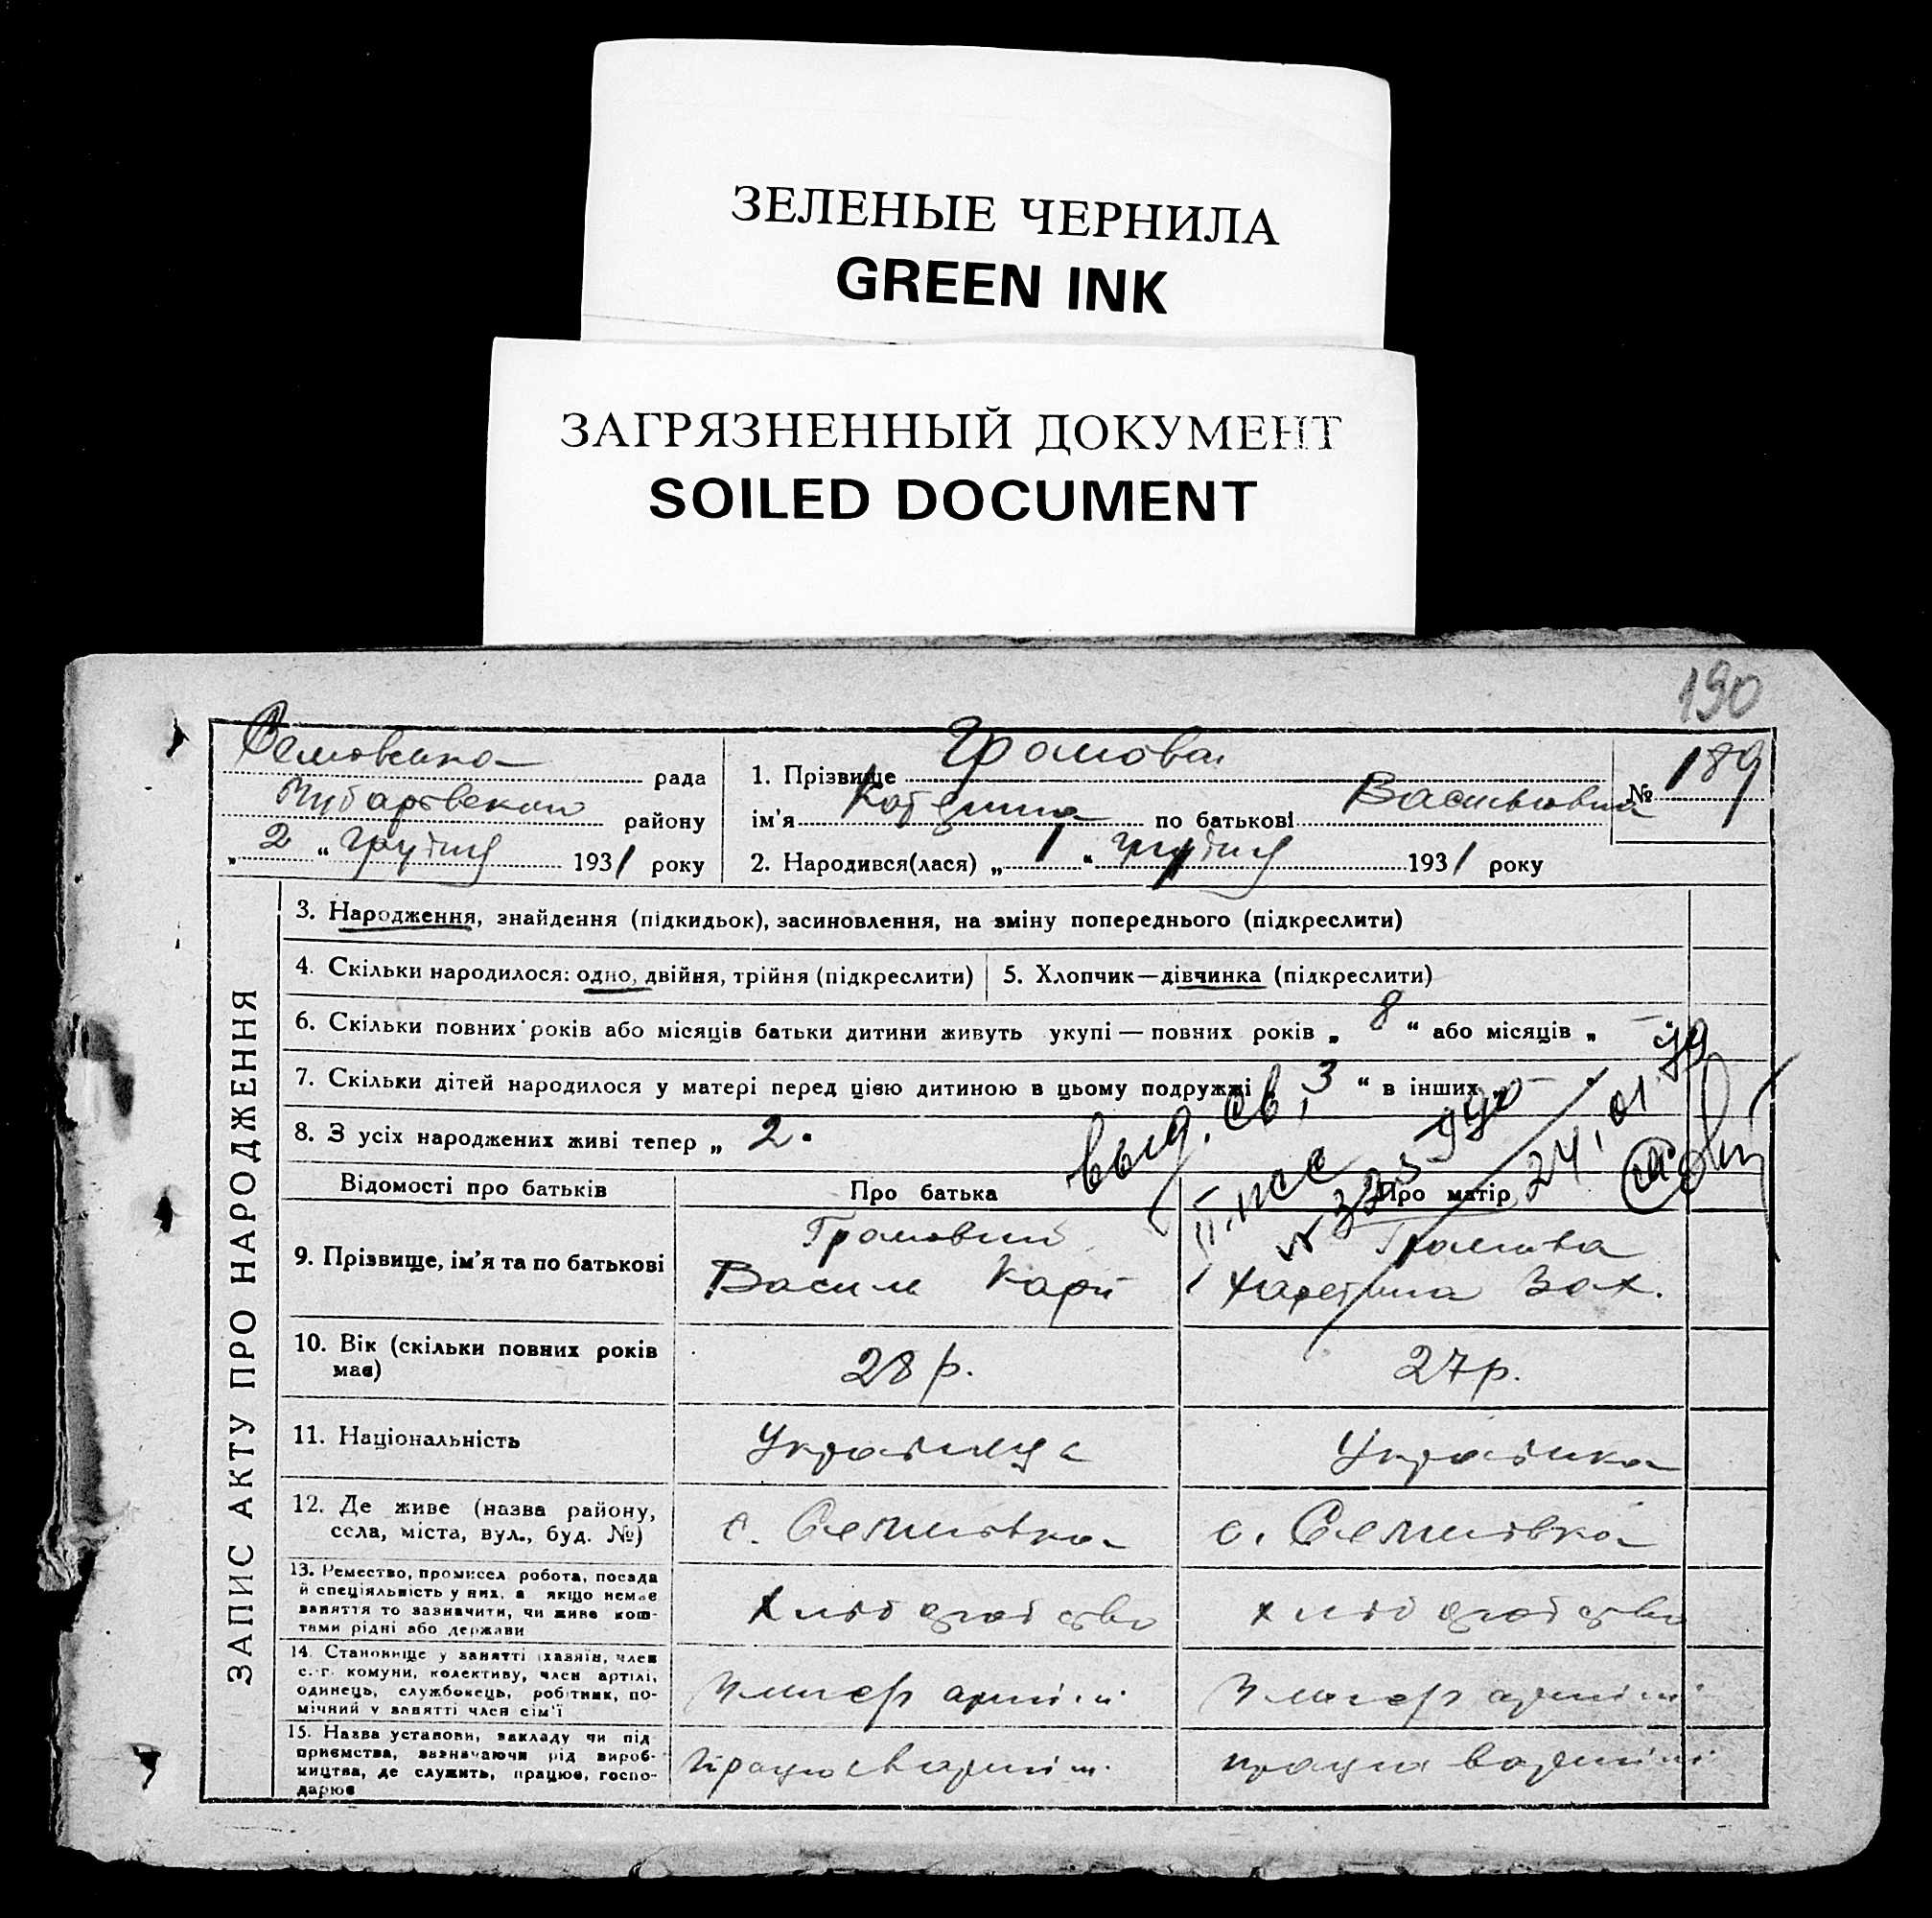 ЗЕЛЕНЫЕ ЧЕРНИЛА
GREEN INK
ЗАГРЯЗНЕННЫЙ ДОКУМЕНТ
SOILED DOCUMENT
190
рада
району
„ 2 “ грудня 1931 року
1. Прізвище Громова
ім'я Катерина по батькові Васильовна
№ 189
2. Народився(лася) „ 1 “ грудня 1931 року
ЗАПИС АКТУ ПРО НАРОДЖЕННЯ
3. Народження, знайдення (підкидьок), засиновлення, на зміну попереднього (підкреслити)
4. Скільки народилося: одно, двійня, трійня (підкреслити)
5. Хлопчик—дівчинка (підкреслити)
6. Скільки повних років або місяців батьки дитини живуть укупі — повних років „ 8 “ або місяців „ –
7. Скільки дітей народилося у матері перед цією дитиною в цьому подружжі 3 “ в інших –
8. З усіх народжених живі тепер „ 2.
выд. св.
24.01
Відомості про батьків
Про батька
Про матір
9. Прізвище, ім'я та по батькові
Громовий
Василь Карп
Громова
Зах.
10. Вік (скільки повних років має)
28 р.
27 р.
11. Національність
Українець
Українка
12. Де живе (назва району,
села, міста, вул., буд. №)
с. Семенівка
с. Семенівка
13. Ремество, промисел робота, посада
й спеціяльність у них, а якщо немає
заняття то зазначити, чи живе кош-
тами рідні або держави
хліборобство
хліборобство
14. Становище у занятті (хазяїн, член
с.-г. комуни, колективу, член артілі,
одинець, службовець, робітник, по-
мічний у занятті член сім'ї
член артілі
член артілі
15. Назва установи, закладу чи під-
приємства, зазначаючи рід вироб-
ництва, де служить, працює, госпо-
дарює
працює в артілі
працює в артілі